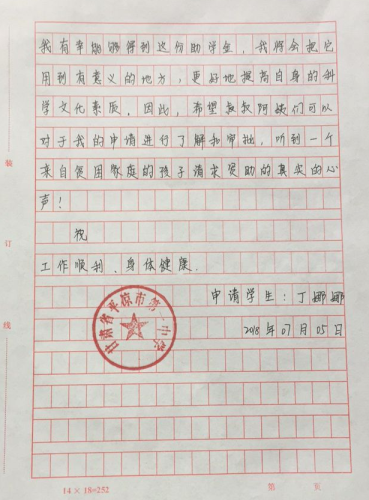 我有幸能够得到这份助学生，我将会把它
用到有意义的地方，更好地提高自身的科
学文化素质，因此，希望叔叔阿姨们可以
对于我的申请进行了解和审批，听到一个
来自贫困家庭的孩子请求资助的真实的心
声！
祝
工作顺利、身体健康．
申请学生：丁娜娜
2018年07月05日
甘肃省平凉市第一中学
装
订
线
14×18=252
第 页